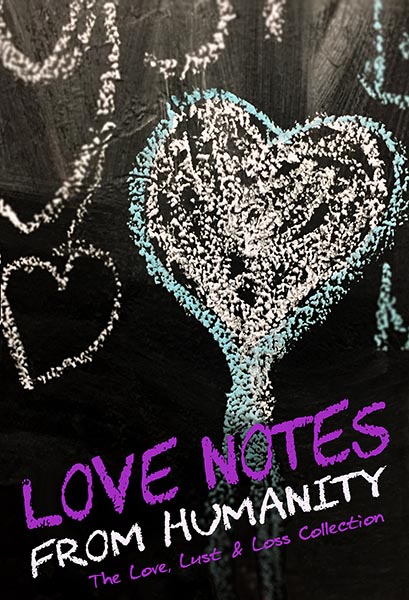 LOVE NOTES
FROM HUMANITY
The Love, Lust & Loss Collection